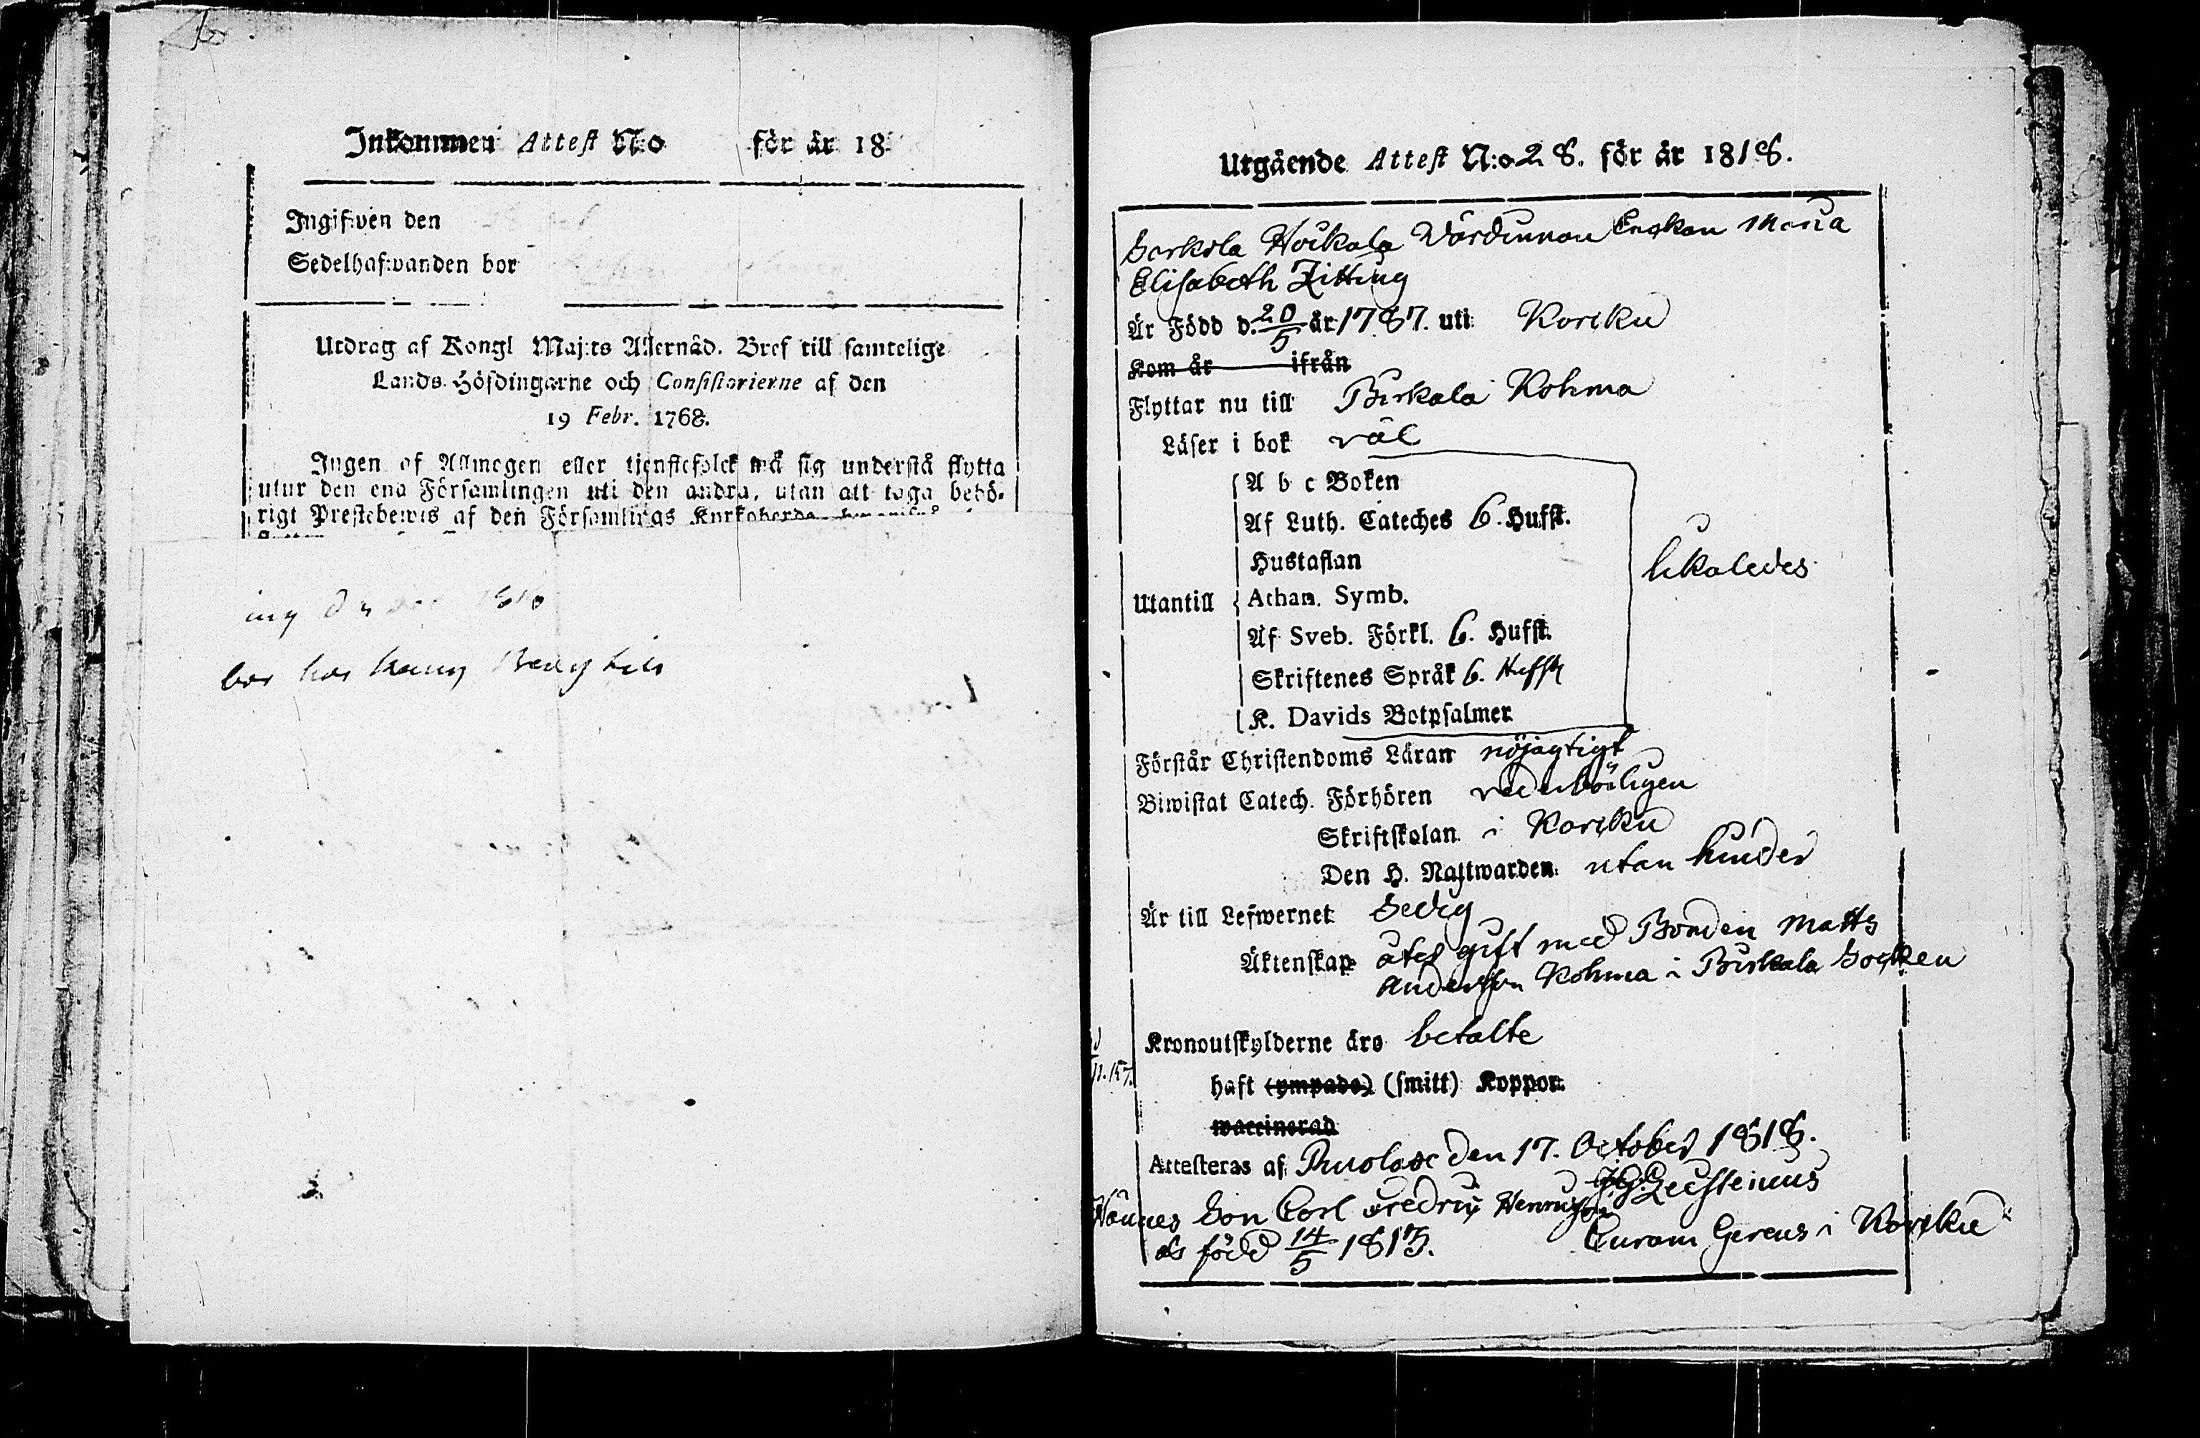 Inkommen Attest No för år 18
Ingifwen den
Sedelhafwanden bor
Utdrag af Kongl Maj:ts Allernåd. Bref till samtelige
Lands-Höfdingarne och Consistorierne af den
19 Febr. 1768.
Ingen af Allmogen eller tjenstefolck må sig understå flytta
utur den ena Församlingen uti den andra, utan att taga behö-
rigt Prestebewis af den Församlings
bor hos
Utgående Attest N:o 28. för år 1818.
Sarkola Hoikala Värdinnan Enkan Maria
Elisabeth Zitting
Är Född d. 20/5 år 1787. uti Korcku
Kom år ifrån
Flyttar nu till Birkala Kohma
Läser i bok väl
A b c Boken
Af Luth. Cateches 6. Hufst.
Hustaflan
Utantill Athan. Symb.
likaledes
Af Sveb. Förkl. 6. Hufst.
Skriftenes Språk 6. Hufst
K. Davids Botpsalmer
Förstår Christendoms Läran nöjagtigt
Biwistat Catech. Förhören vederbörligen
Skriftskolan i Korcku
Den H. Nattwarden utan hinder
Är till Lefwernet Sedig
Äktenskap åter gift med Bonden Matts
Andersson Kohma i Birkala Socken
Kronoutskylderne äro betalte
haft (ympade) (smitt) Koppor.
waccinerad
Attesteras af den 17. October 1818.
Hännes Son Carl Fredric Henricsson
är född 14/5 1813. Curam Gerens i Korcku